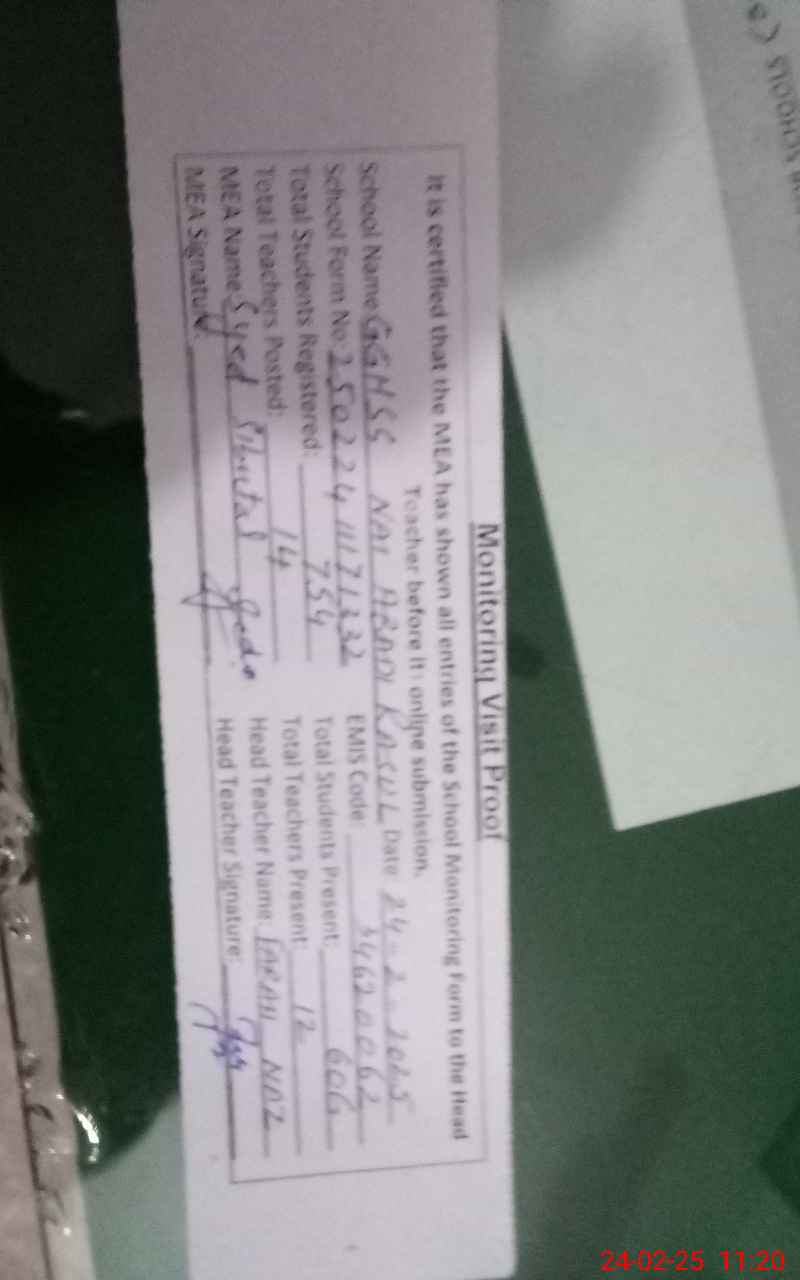 Monitoring Visit Proof
It is certified that the MEA has shown all entries of the School Monitoring Form to the Head
Teacher before it online submission.
School Name GGHSS NAI ABADI RASUL Date 24-2-2025
School Form No 250224 EMIS Code: 34620062
Total Students Registered: 754 Total Students Present: 606
Total Teachers Posted: 14 Total Teachers Present: 12
MEA Name Syed Head Teacher Name: FARAH NAZ
MEA Signature: Head Teacher Signature:
SCHOOLS
24-02-25 11:20